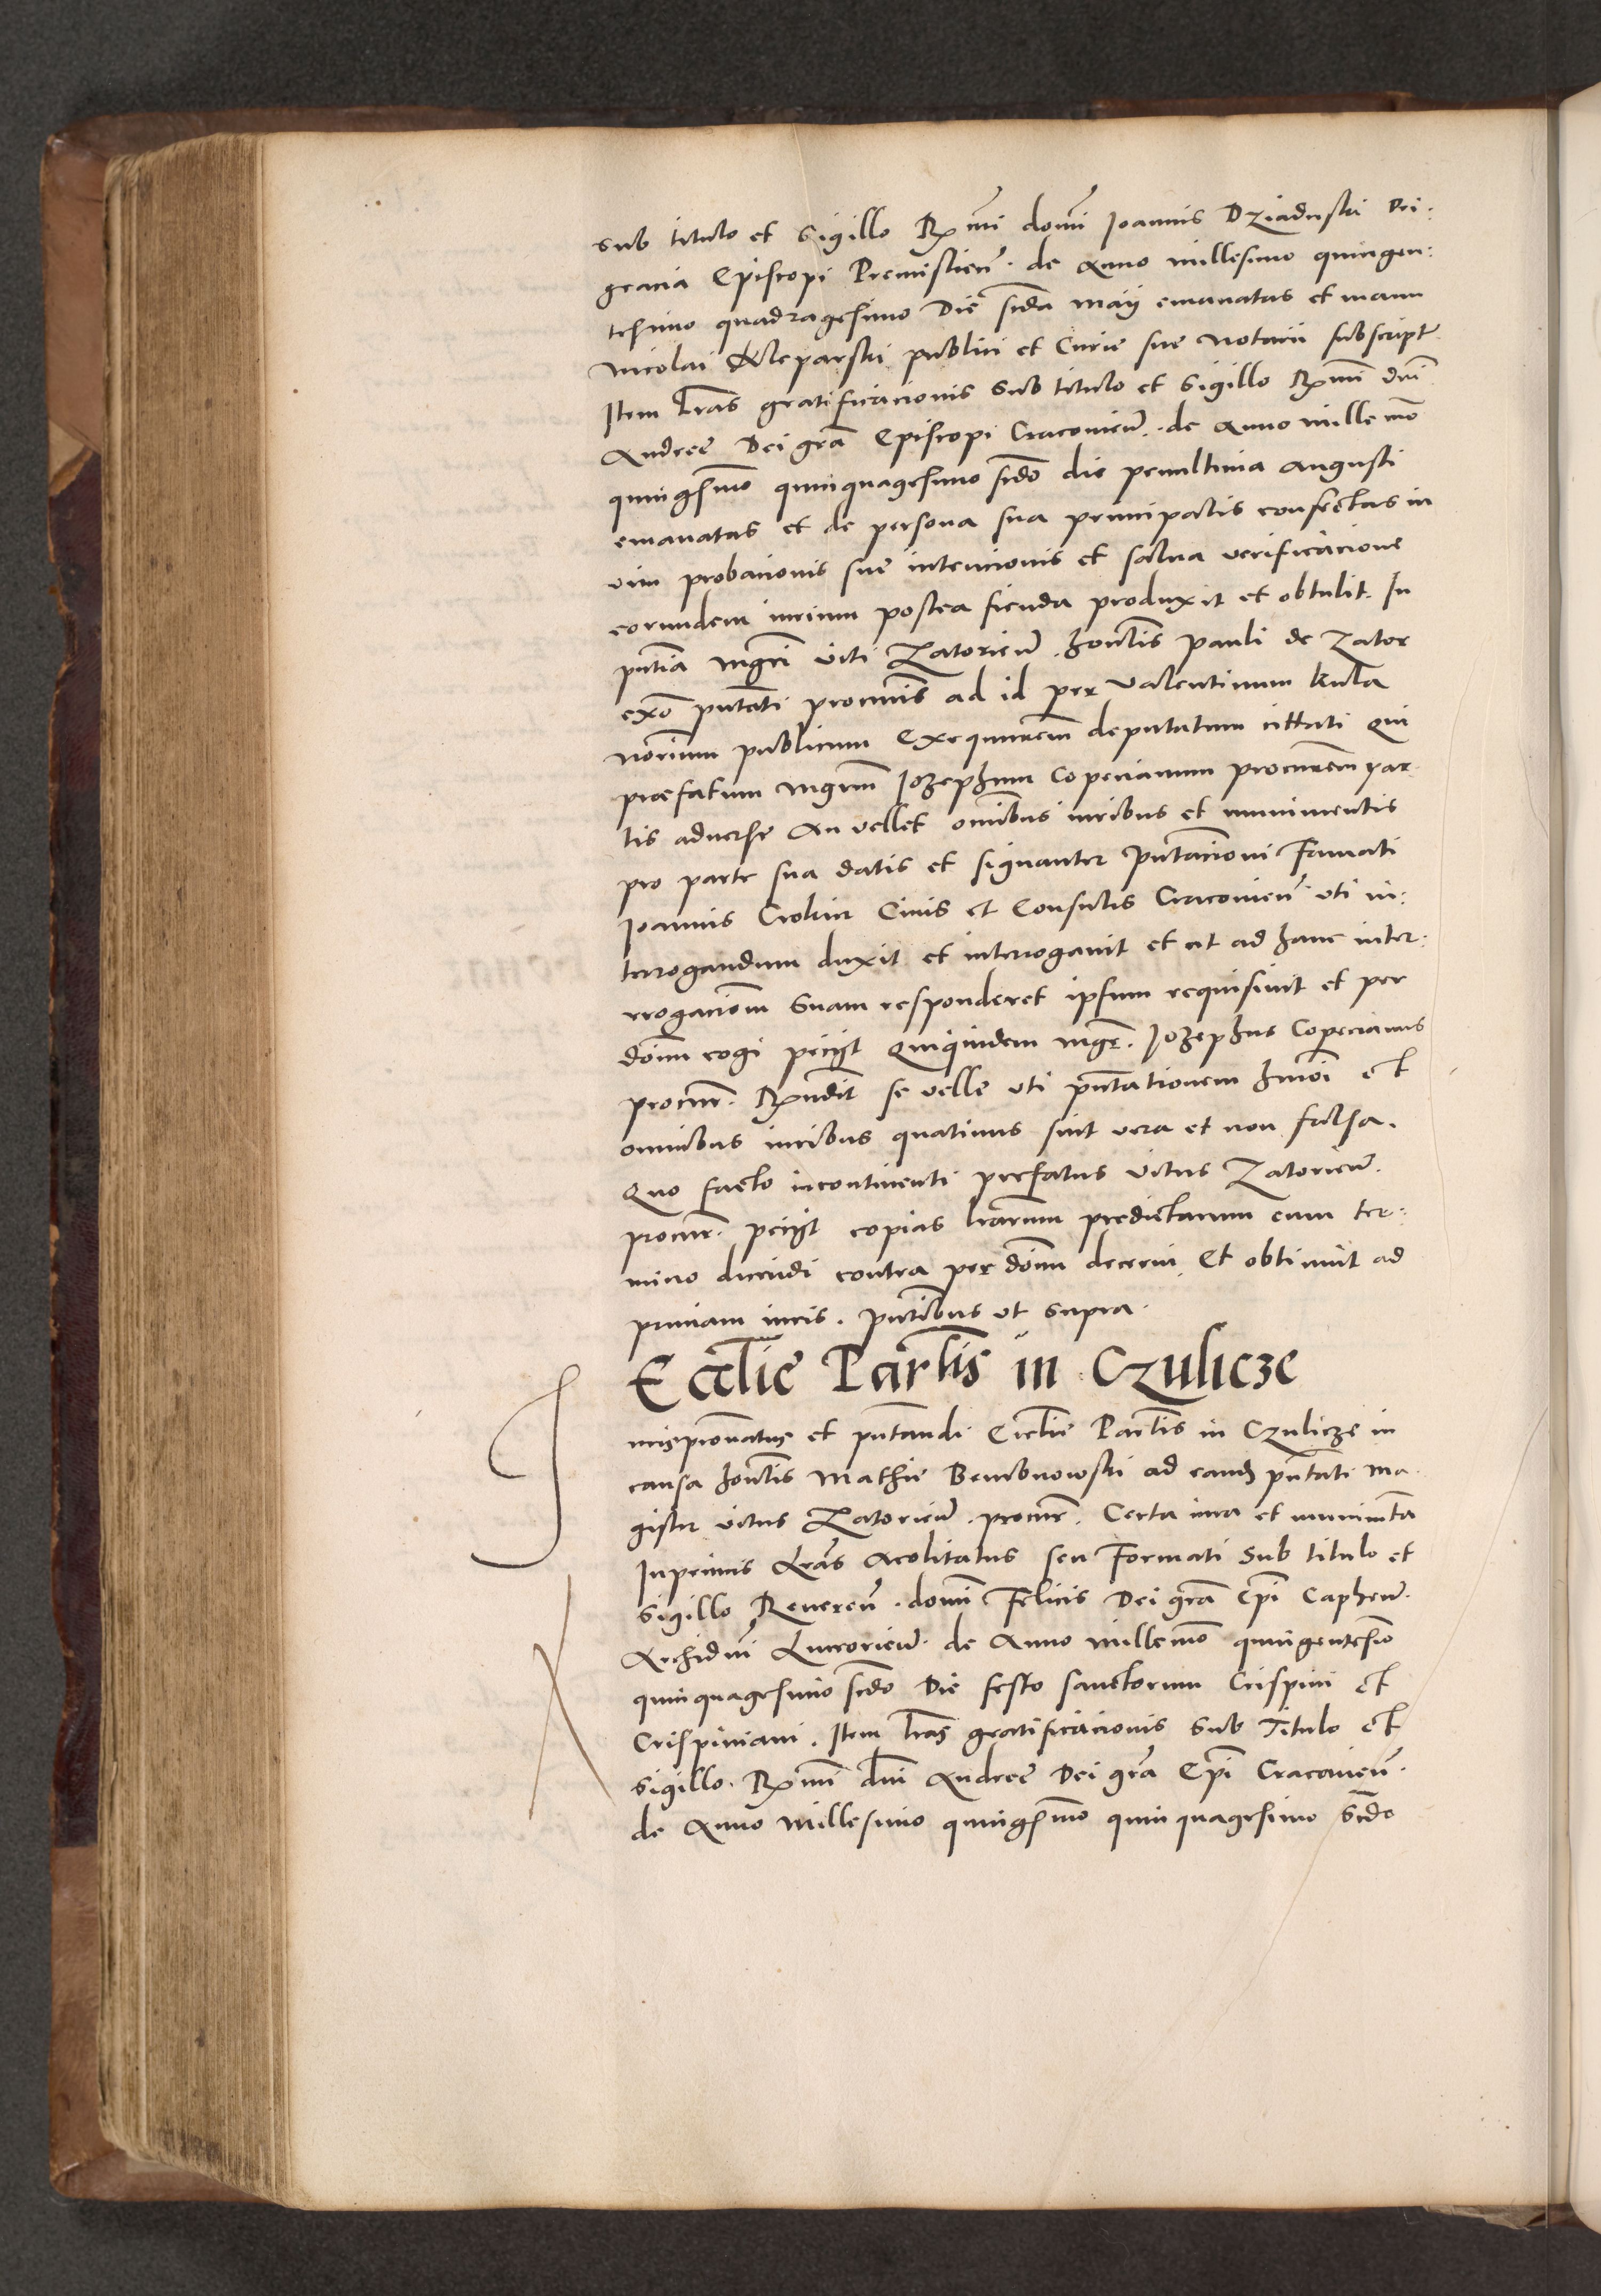 sub titulo et sigillo Rx̃mi domi Joannis Dziaduski Dei:
gracia Episcopi Premislień. de Anno millesimo quingen:
tesimo quadragesimo Die scda maij emanatas et manu
Nicolai Kleparski publici et Curie sue Notarii subscript.
Item Lr̃as gratificacionis sub titulo et sigillo Rx̃mi dnĩ
Andree Dei grã Episcopi Cracovień. de Anno millemo
quingẽsmo quinquagesimo scdo die penultima Augusti
emanatas et de persona sua principalis confectas in
vim probacionis sue intencionis et salva verificacione
eorundem iurium postea fienda produxit et obtulit. In
pñtia mgrĩ viti Zatorień. honlis pauli de Zator
exõ pñtati procuris ad id per Valentinum Kula
norium publicum Exequutem deputatum cittati Qui
prefatum mgrum Jozephum Copecianum procurem par
tis adverse An vellet omĩbus iuribus et munimentis
pro parte sua datis et signanter pñtacioni Famati
Joannis Crokier Civis et Consulis Cracovień. uti in:
terrogandum duxit et interrogavit et ut ad hanc inter:
rrogaciõem suam responderet ipsum requisivit et per
dõm cogi peciit Quiquidem mgr. Jozephus Copecianus
procur. Rx̃ndit se velle uti pñtationem hmõi et
omnibus iuribus quatinus sint vera et non falsa.
Quo facto incontinenti prefatus vitus Zatorień.
procur. peciit copias lrarum predictarum cum ter:
mino dicendi contra per dõm decerni. Et obtinuit ad
primam iuris. pñtibus ut supra.
Ecclie Parlis in Czulicze
Jurispronatus et pñtandi Ecclie Parlis in Czulicze in
causa honlis Mathie Bembnowski ad eandẽ pñtati ma
gister vitus Zatorień. procur. Certa iura et munimta
Inprimis Lrãs Acolitatus seu Formati sub titulo et
sigillo Reverenď. domi Felicis Dei grã Epĩ Capheń.
Archidnĩ Luceorień. de Anno millemo quingentesiõ
quinquagesimo scdo Die festo sanctorum Crispini et
Crispiniani. Item lrãs gratificacionis sub Titulo et
sigillo. Rx̃mi dnĩ Andree Dei grã Epĩ Cracovień.
de Anno millesimo quingẽsmo quinquagesimo scdo